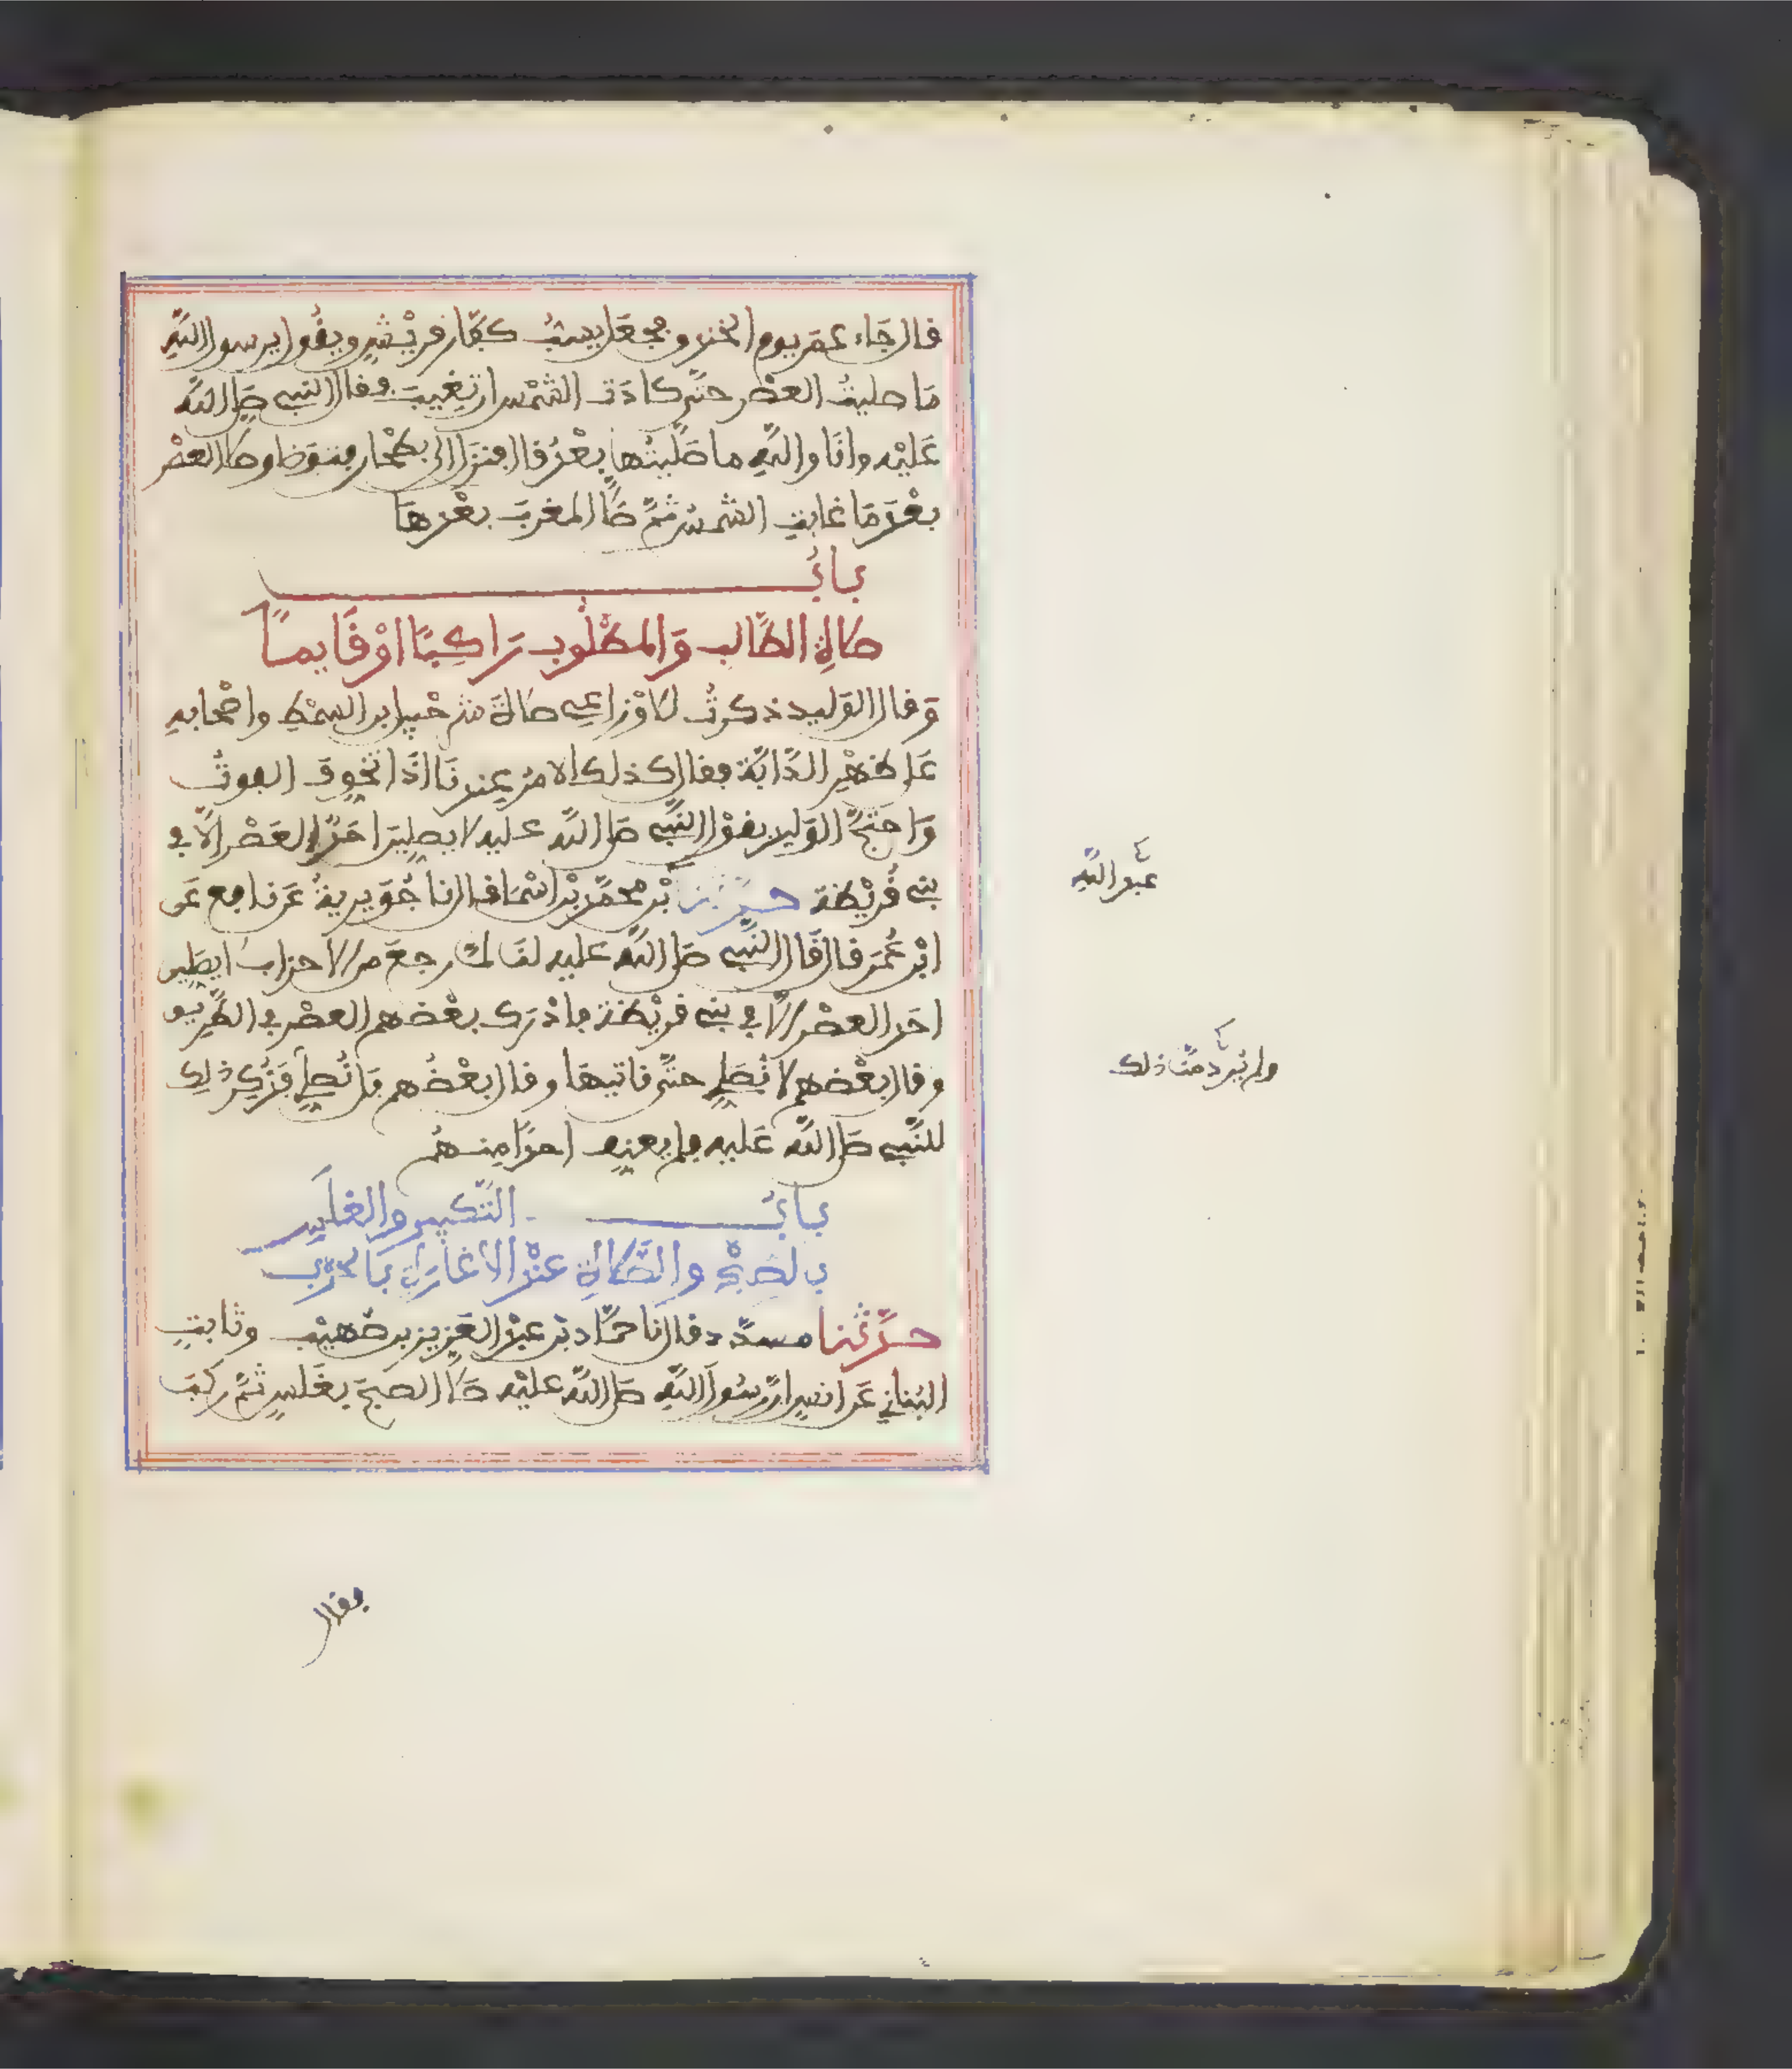 قال جَاء عمَر يوم الخندق فجعَل يسبُّ كفّار قريْشٍ ويقُول يرسول اللَّهِ
مَا صليتُ العصْر حتَّى كادَت الشمْس ان تغيبَ فقال النبي صَلى اللَّه
عَليْه وانَا واللَّهِ ما صَلَّيتُها بعْدُ قال فنزل الى بطْحان فتوَضا وصَلى العصْر
بعْدَ مَا غابتِ الشمسُ ثمَّ صَلَّى المغربَ بعْدهَا
بابُ
صَلاةِ الطَّالب وَالمطْلُوب رَاكِبًا اوْ قَايمًا
وَقال الوَليد ذكرتُ للاوْزاعي صلاةَ شرَحْبيل ابن السمْطِ واصْحابهِ
عَلى ظهْرِ الدَّابَّة فقال كذلك الامرُ عِندنَا اذَا تُخُوِّفَ الفوتُ
وَاحتجَّ الوَليد بقوْل النَّبي صَلى اللَّه عليه لا يصلِّيَنَّ احَدٌ العَصْر الَّا في
بني قُريْظة حدثنا ابْن محمَّد بْن اسْمَا قال نا جُوَيرية عَن نافع عَن
ابْن عُمَر قال قَال النَّبي صَلى اللَّه عليه لنَا لمَّا رجعَ من الاحزاب لا يصَلين
احَد العصْر الَّا في بني قريْظة فادْرَك بعْضهم العصْر في الطَّرِيق
وقال بعْضهم لا نُصَلي حتَّى ناتيهَا وقال بعْضُهم بَل نُصلِّي فَذُكِرَ ذلك
للنَّبي صَلى اللَّه عَليه فلم يعنِّف احدًا مِنهُم
بابُ التَّكبير والغلَسِ
بالصبْحِ والصَّلاةِ عنْد الاغارَةِ بَالحرْبِ
حدَّثنا مسدَّد قال نَا حمَّاد عن عبْد العَزيز بن صُهيْب وثابتٍ
البُناني عَن انسٍ انَّ رسُولَ اللَّهِ صَلى اللَّه عليْه صَلَّى الصبحَ بغَلسٍ ثمَّ ركبَ
عبد اللَّهِ
ولم يُرِد منَّا ذلك
فقال